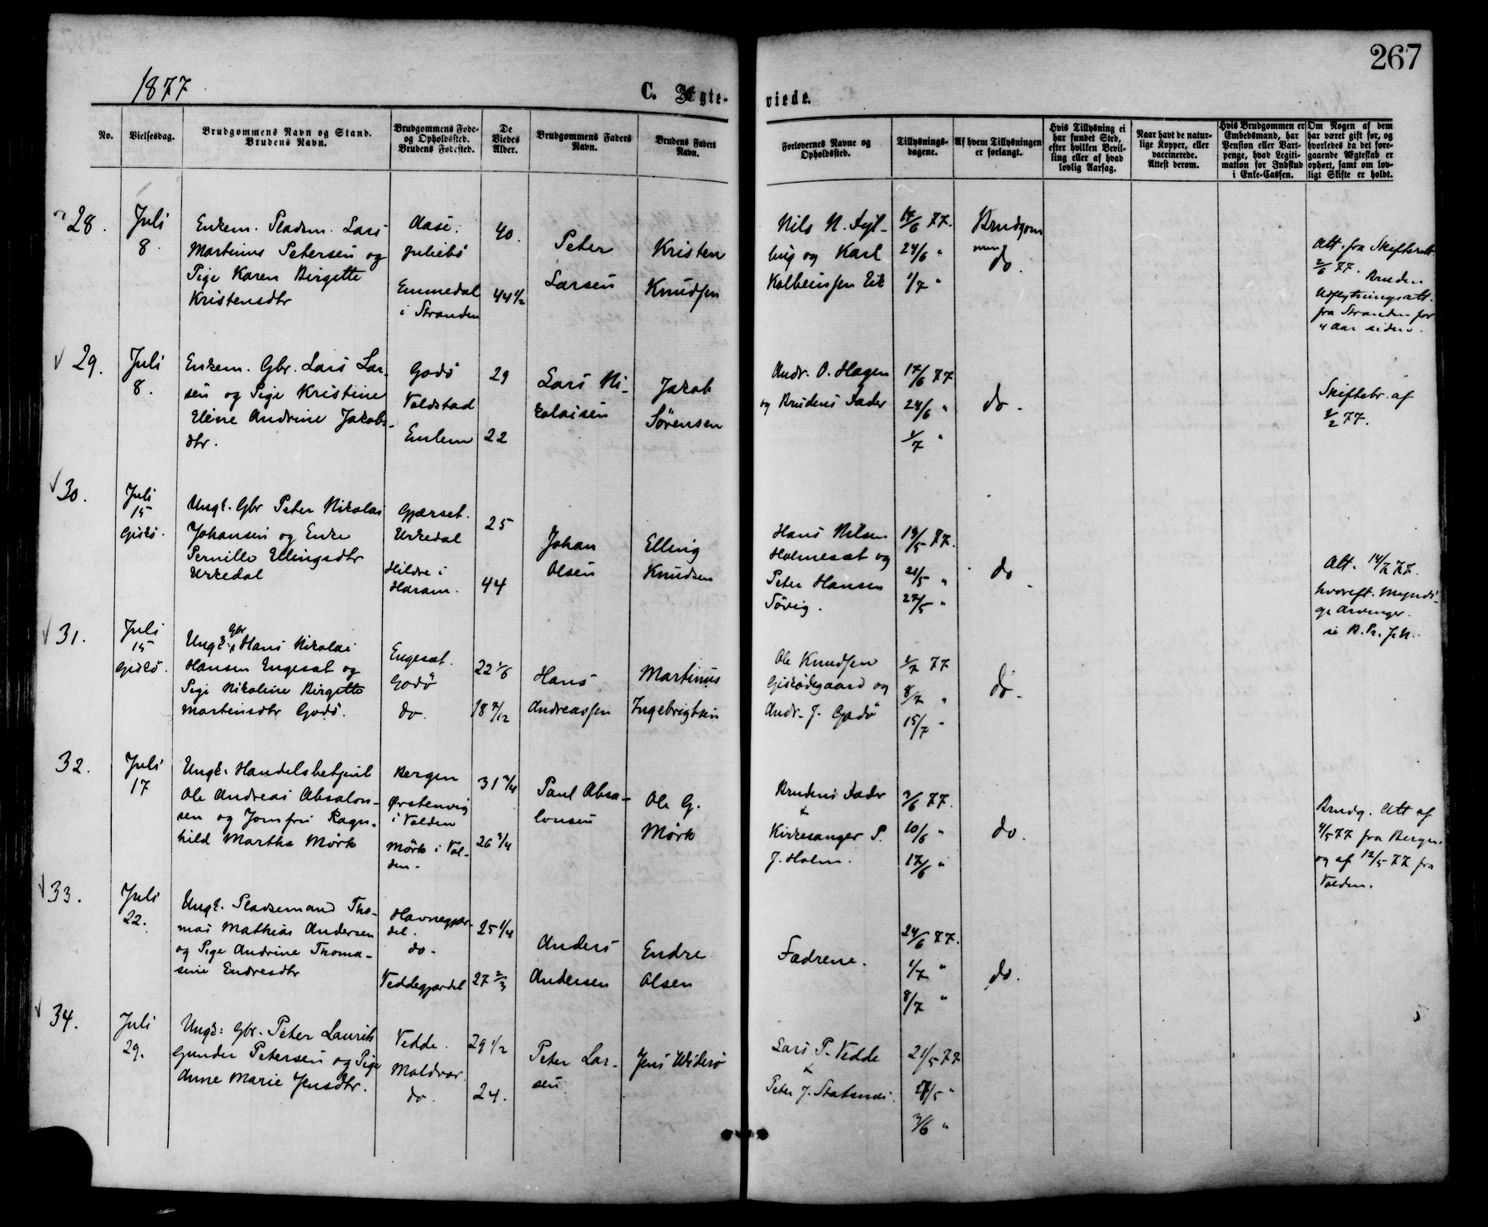 267
1877
C. Ægteviede.
No.
Vielsesdag.
Brudgommens Navn og Stand.
Brudens Navn.
Brudgommens Føde-
og Opholdssted.
Brudens Fødested.
De
Viedes
Alder.
Brudgommens Faders
Navn.
Brudens Faders
Navn.
Forlovernes Navne og
Opholdssted.
Tillysnings-
dagene.
Af hvem Tillysningen
er forlangt.
Hvis Tillysning ei
har fundet Sted,
efter hvilken Bevil-
ling eller af hvad
lovlig Aarsag.
Naar havt de natur-
lige Kopper, eller
vaccinerede.
Attest derom.
Hvis Brudgommen er
Embedsmand, har
Pension eller Vart-
penge, hvad Legiti-
mation for Indskud
i Enke-Cassen.
Om Nogen af dem
har været gift før, og
hvorledes da det fore-
gaaende Ægteskab er
ophørt, samt om lov-
ligt Skifte er holdt.
28.
Juli
8
Enkem. Pladsm. Lars
Martinus Petersen og
Pige Karen Birgitte
Kristensdtr
Aase.
Juliebö
Emmedal
i Stranden
40.
44 1/2
Peter
Larsen
Kristen
Knudsen
Nils N.
og Karl
Kolbeinsen Eik
17/6 77.
24/6 "
1/7 "
Brudgom
men
do.
Att. fra Skifteret
2/6 77. Bruden
Udflytningsatt.
fra Stranden for
4 Aar siden.
29.
Juli
8.
Enkem. Gbr. Lars Lar-
sen og Pige Kristine
Elene Andrine Jakobs-
dtr.
Godö
Valdstad
Emlem
29
22
Lars Ni-
kolaisen
Jakob
Sörensen
Andr. O. Hagen
og Brudens Fader
17/6 77
24/6 "
1/7 "
do.
Skiftebr. af
2/2 77.
30.
Juli
15
Giskö.
Ungk. Gbr Peter Nikolai
Johansen og Enke
Pernille Ellingsdtr
Urkedal
Gjærset.
Urkedal
Hildre i
Haram.
25
44
Johan
Olsen
Elling
Knudsen
Hans Nilsen
Holmeset og
Peter Hansen
Sövig.
do
Att. 14/7 77.
hvoreft. Myndi-
ge Arvinger.
31.
Juli
15
Giskö.
Ungk. Gbr Hans Nikolai
Hansen Engeset og
Pige Nikoline Birgitte
Martinsdtr Godö.
Engeset.
Godö
do.
22 1/6
18 7/12
Hans
Andreassen
Martinus
Ingebrigtsen
Ole Knudsen
Giskødegaard og
Andr. J. Godö
1/7 77
8/7 "
15/7 "
do.
32.
Juli
17
Ungk. Handelsbetjent
Ole Andreas Absalon-
sen og Jomfru Ragn-
hild Martha Mörk
Bergen
Ørstenvig
i Volden
Mörk i Vol-
den.
31 3/4
26 3/4
Paul Absa-
lonsen
Ole G.
Mörk
Brudens Fader
+
Kirkesanger P.
J. Holm.
3/6 77.
10/6 "
17/6 "
do.
Brudg. Att af
4/5 77 fra Bergen
og af 12/5 77 fra
Volden.
33.
Juli
22.
Ungk. Pladsemand Tho-
mas Mathias Andersen
og Pige Andrine Thoma-
sine Endresdtr
Havnegjær-
del.
do.
Veddegjerdet
25 1/4
27 2/3
Anders
Andersen
Endre
Olsen
Fædrene.
24/6 77.
1/7 "
8/7 "
do.
34.
Juli
29.
Ungk: Gbr. Peter Laurits
Gunder Petersen og Pige
Anne Marie Jensdtr.
Vedde.
Moldvær.
do.
29 1/2
24.
Peter Lar-
sen
Jens
Lars P. Vedde
+
Peter J.
21/5 77
27/5 "
3/6 "